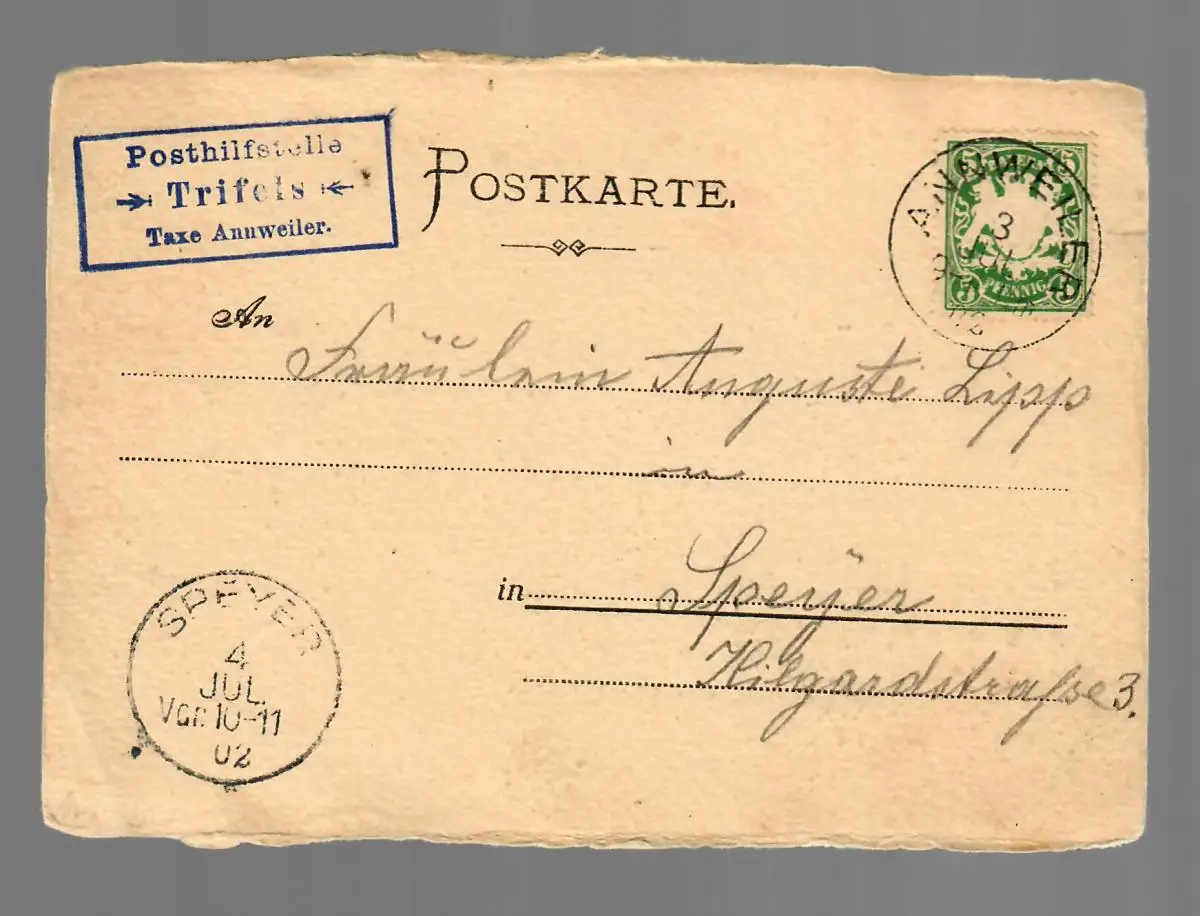 Posthilfstelle
Trifels
Taxe Annweiler.
POSTKARTE.
5 5
ANNWEILER
3
JUL
02
PFENNIG
5
An
Fräulein Auguste Lipp
in
in Speyer
Hilgardstraße 3.
SPEYER
4
JUL
Vor. 10-11
02